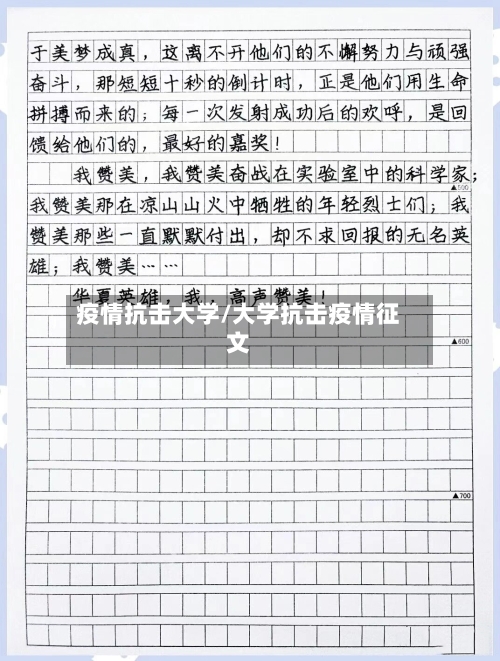 于美梦成真，这离不开他们的不懈努力与顽强
奋斗，那短短十秒的倒计时，正是他们用生命
拼搏而来的；每一次发射成功后的欢呼，是回
馈给他们的，最好的嘉奖！
我赞美，我赞美奋战在实验室中的科学家；
▲500
我赞美那在凉山山火中牺牲的年轻烈士们；我
赞美那些一直默默付出，却不求回报的无名英
雄；我赞美……
华夏英雄，我，高声赞美！
疫情抗击大学/大学抗击疫情征
文
▲600
▲700